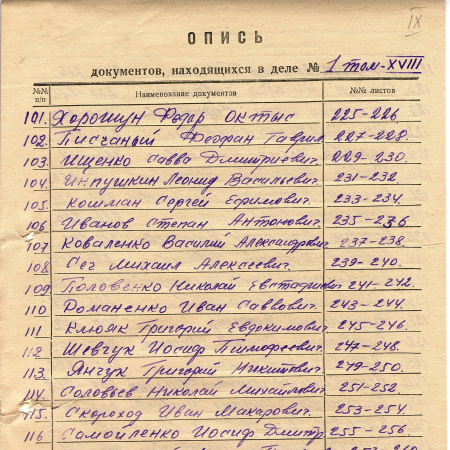 IX
ОПИСЬ
документов, находящихся в деле № 1 том-XVIII
№№ п/п Наименование документов №№ листов
101. Хорошун Федар Октыс 225-226
102. Писчаный Феофан Гаврил 227-228.
103. Ищенко Савва Дмитриевич. 229-230.
104. Инпушкин Леонид Васильевич. 231-232.
105. Кошман Сергей Ефимович. 233-234.
106 Иванов Степан Антонович. 235-236
107 Коваленко Василий Александрович 237-238
108 Сеч Михаил Алексеевич. 239-240.
109 Половенко Николай Евстафиевич 241-242.
110 Романенко Иван Саввович. 243-244.
111 Клюяк Григорий Евдокимович. 245-246.
112 Шевчук Иосиф Тимофеевич. 247-248.
113. Янчук Григорий Никитович. 249-250.
114. Соловьев Николай Михайлович. 251-252.
115. Скороход Иван Макарович. 253-254.
116 Самойленко Иосиф Дмитр 255-256.